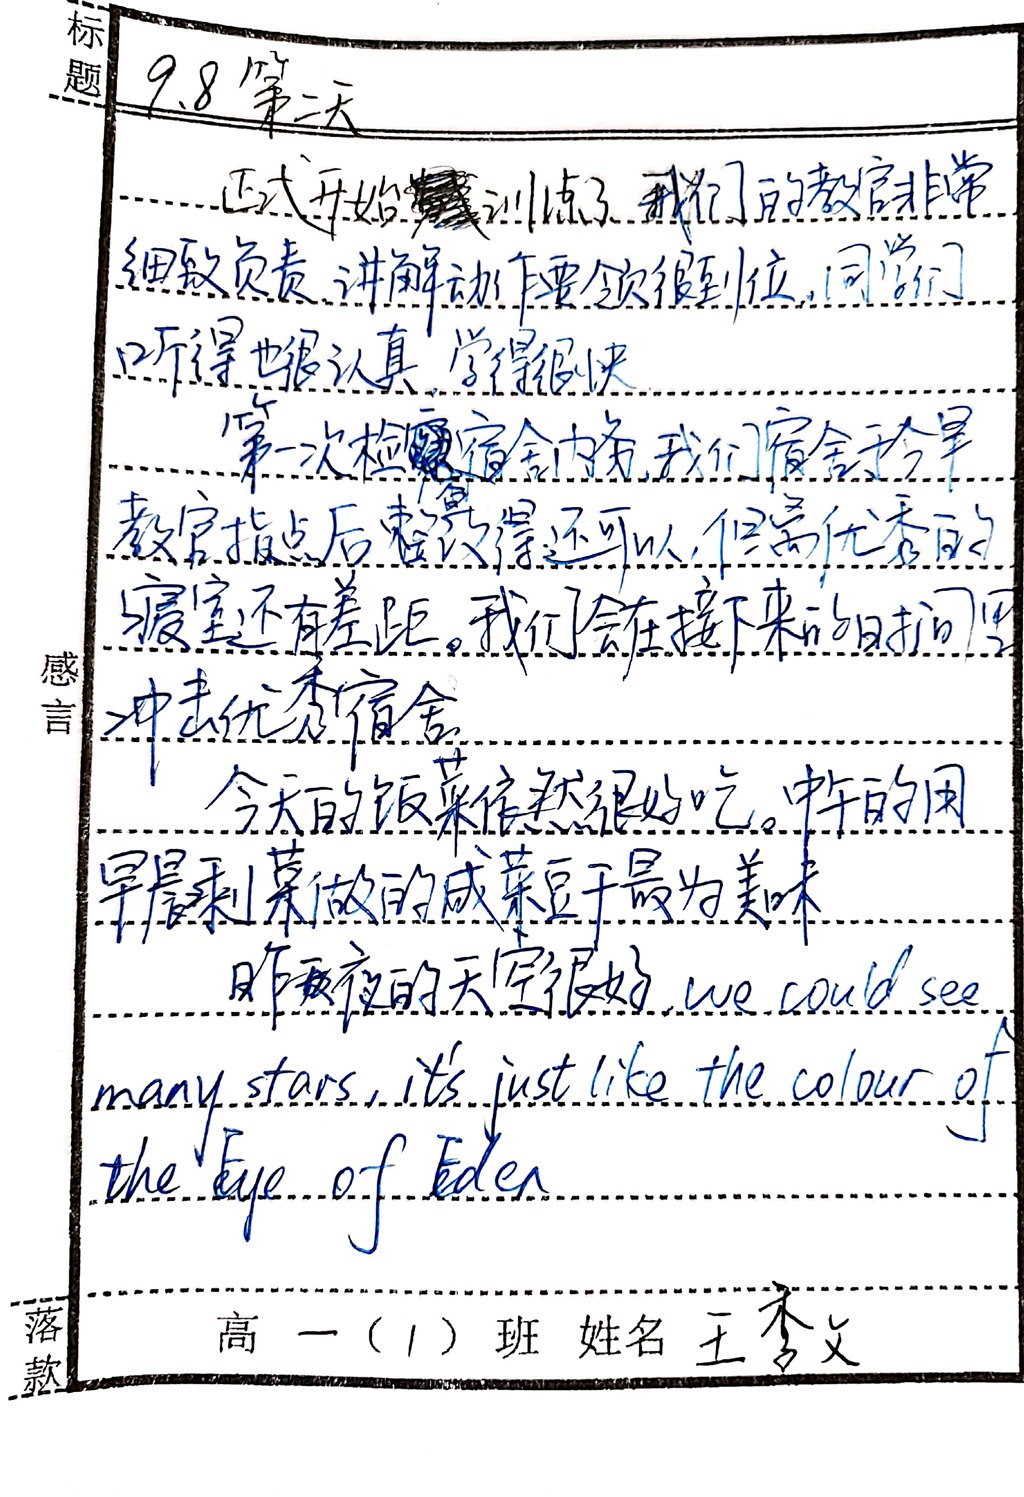 标题
9.8 第二天
正式开始训练了 我们的教官非常
细致负责,讲解动作要领很到位,同学们
听得也很认真,学得很快
第一次检宿舍内务,我们宿舍于今早
教官指点后整改得还可以,但离优秀的
寝室还有差距。我们会在接下来的时间里
冲击优秀宿舍
感言
今天的饭菜依然很好吃。中午的用
早晨剩菜做的咸菜豆干最为美味
昨夜的天空很好,we could see
many stars, it's just like the colour of
the Eye of Eden
落款
高 一 ( 1 ) 班 姓名 王季文